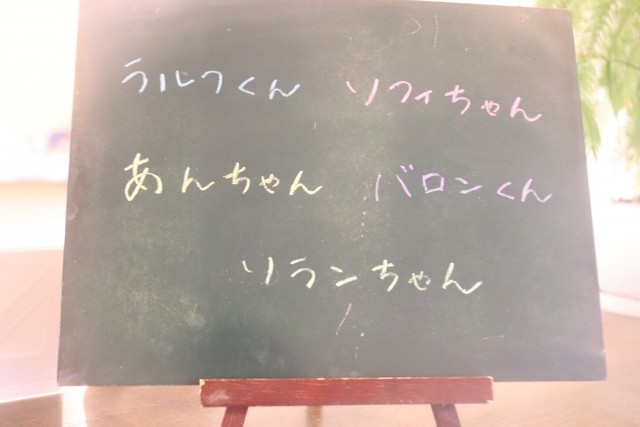 ラルフくん ソフィちゃん
あんちゃん バロンくん
ソランちゃん